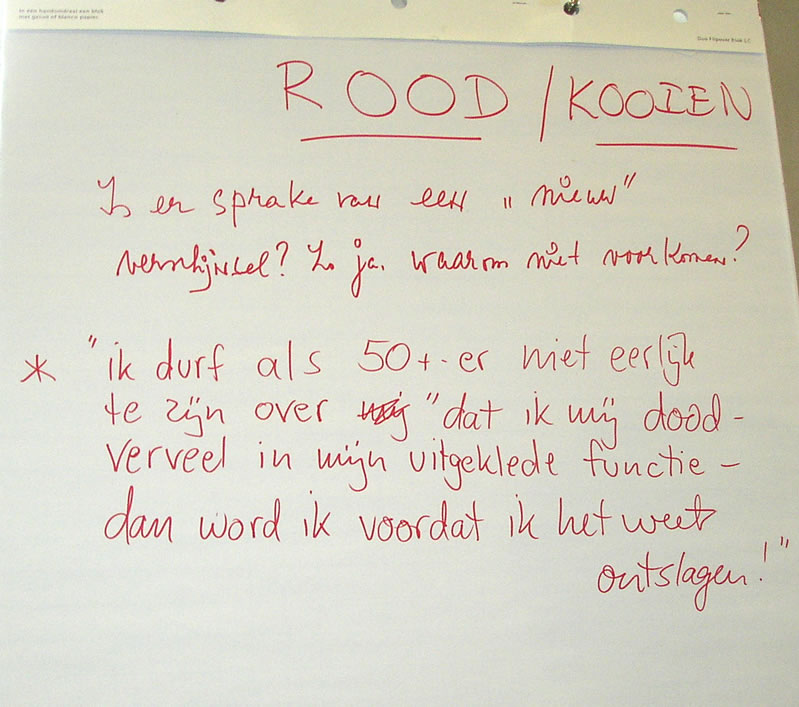 in een handomdraai een blok
met geruit of blanco papier.
ROOD / KOOIEN
Is er sprake van een „ nieuw"
verschijnsel? Zo ja, waarom niet voorkomen?
* "ik durf als 50+-er niet eerlijk
te zijn over "dat ik mij dood-
verveel in mijn uitgeklede functie –
dan word ik voordat ik het weet
ontslagen!"